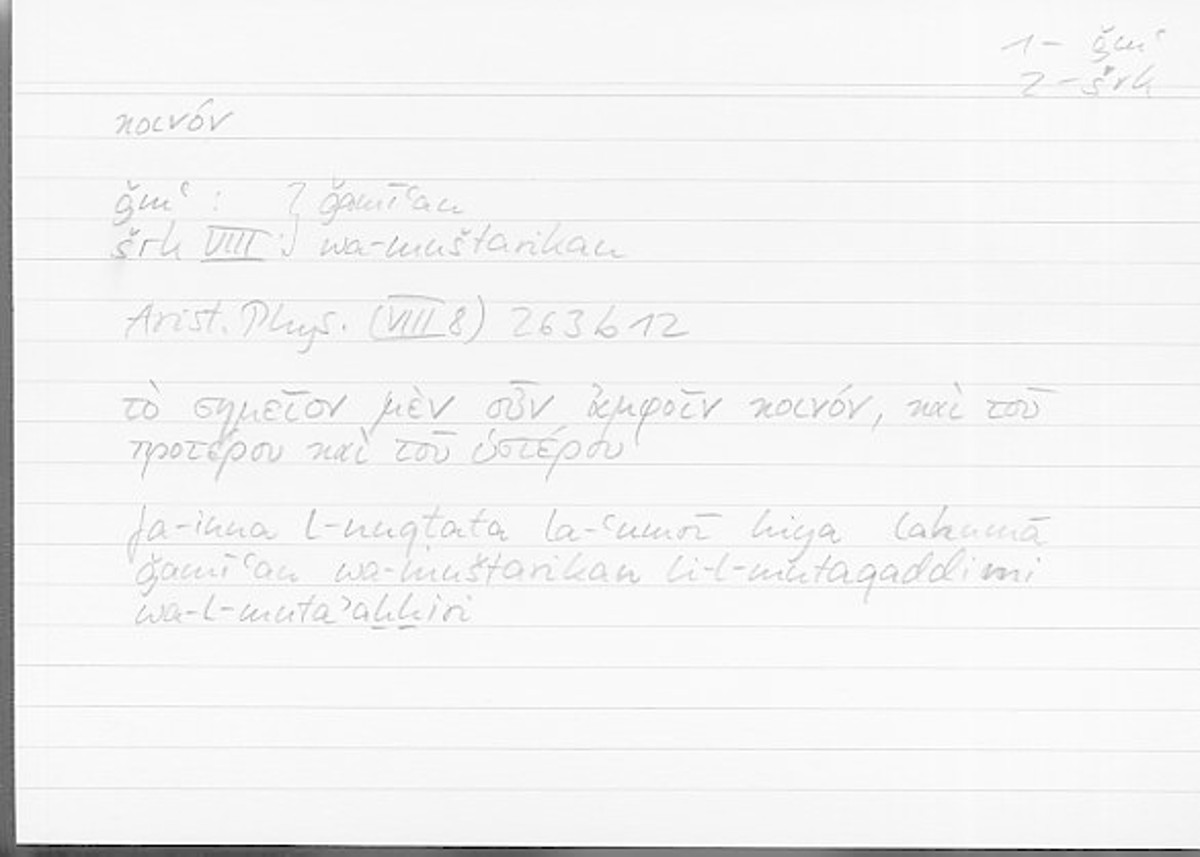 1 - ǧmʿ
2 - šrk
κοινόν
ǧmʿ : } ǧamīʿan
šrk VIII : } wa-muštarikan
Arist. Phys. (VIII 8) 263 b 12
τὸ σημεῖον μὲν οὖν ἀμφοῖν κοινόν, καὶ τοῦ
προτέρου καὶ τοῦ ὑστέρου
fa-inna l-nuqtata la-ʿumrī hiya lahumā
ǧamīʿan wa-muštarikan li-l-mutaqaddimi
wa-l-mutaʾaḫḫiri